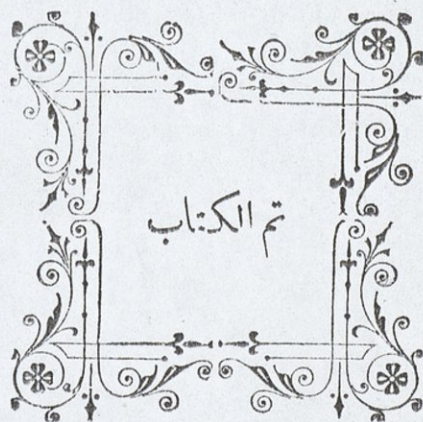 تم الكتاب